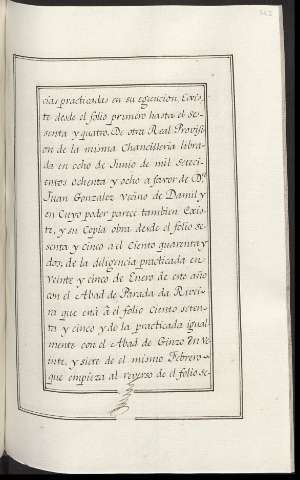 cias practicadas en su egecucion, Exis-
te desde el folio primero hasta el se-
senta y quatro. De otra Real Provisi-
on de la misma Chancilleria libra-
da en ocho de Junio de mil Seteci-
entos ochenta y ocho a favor de Dn.
Juan Gonzalez Vecino de Damil y
en Cuyo poder parece tambien Exis-
te, y su Copia obra desde el folio se-
senta y cinco a el Ciento quarenta y
dos, de la diligencia practicada en
Veinte y cinco de Enero de este año
con el Abad de Parada da Rivei-
ra que está â el folio Ciento seten-
ta y cinco y de la practicada igual-
mente con el Abad de Ginzo en Ve-
inte, y siete de el mismo Febrero
que empieza al reverso de el folio se-